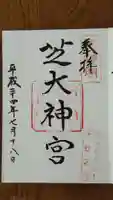 奉拝
芝大神宮
平成廿四年七月十八日